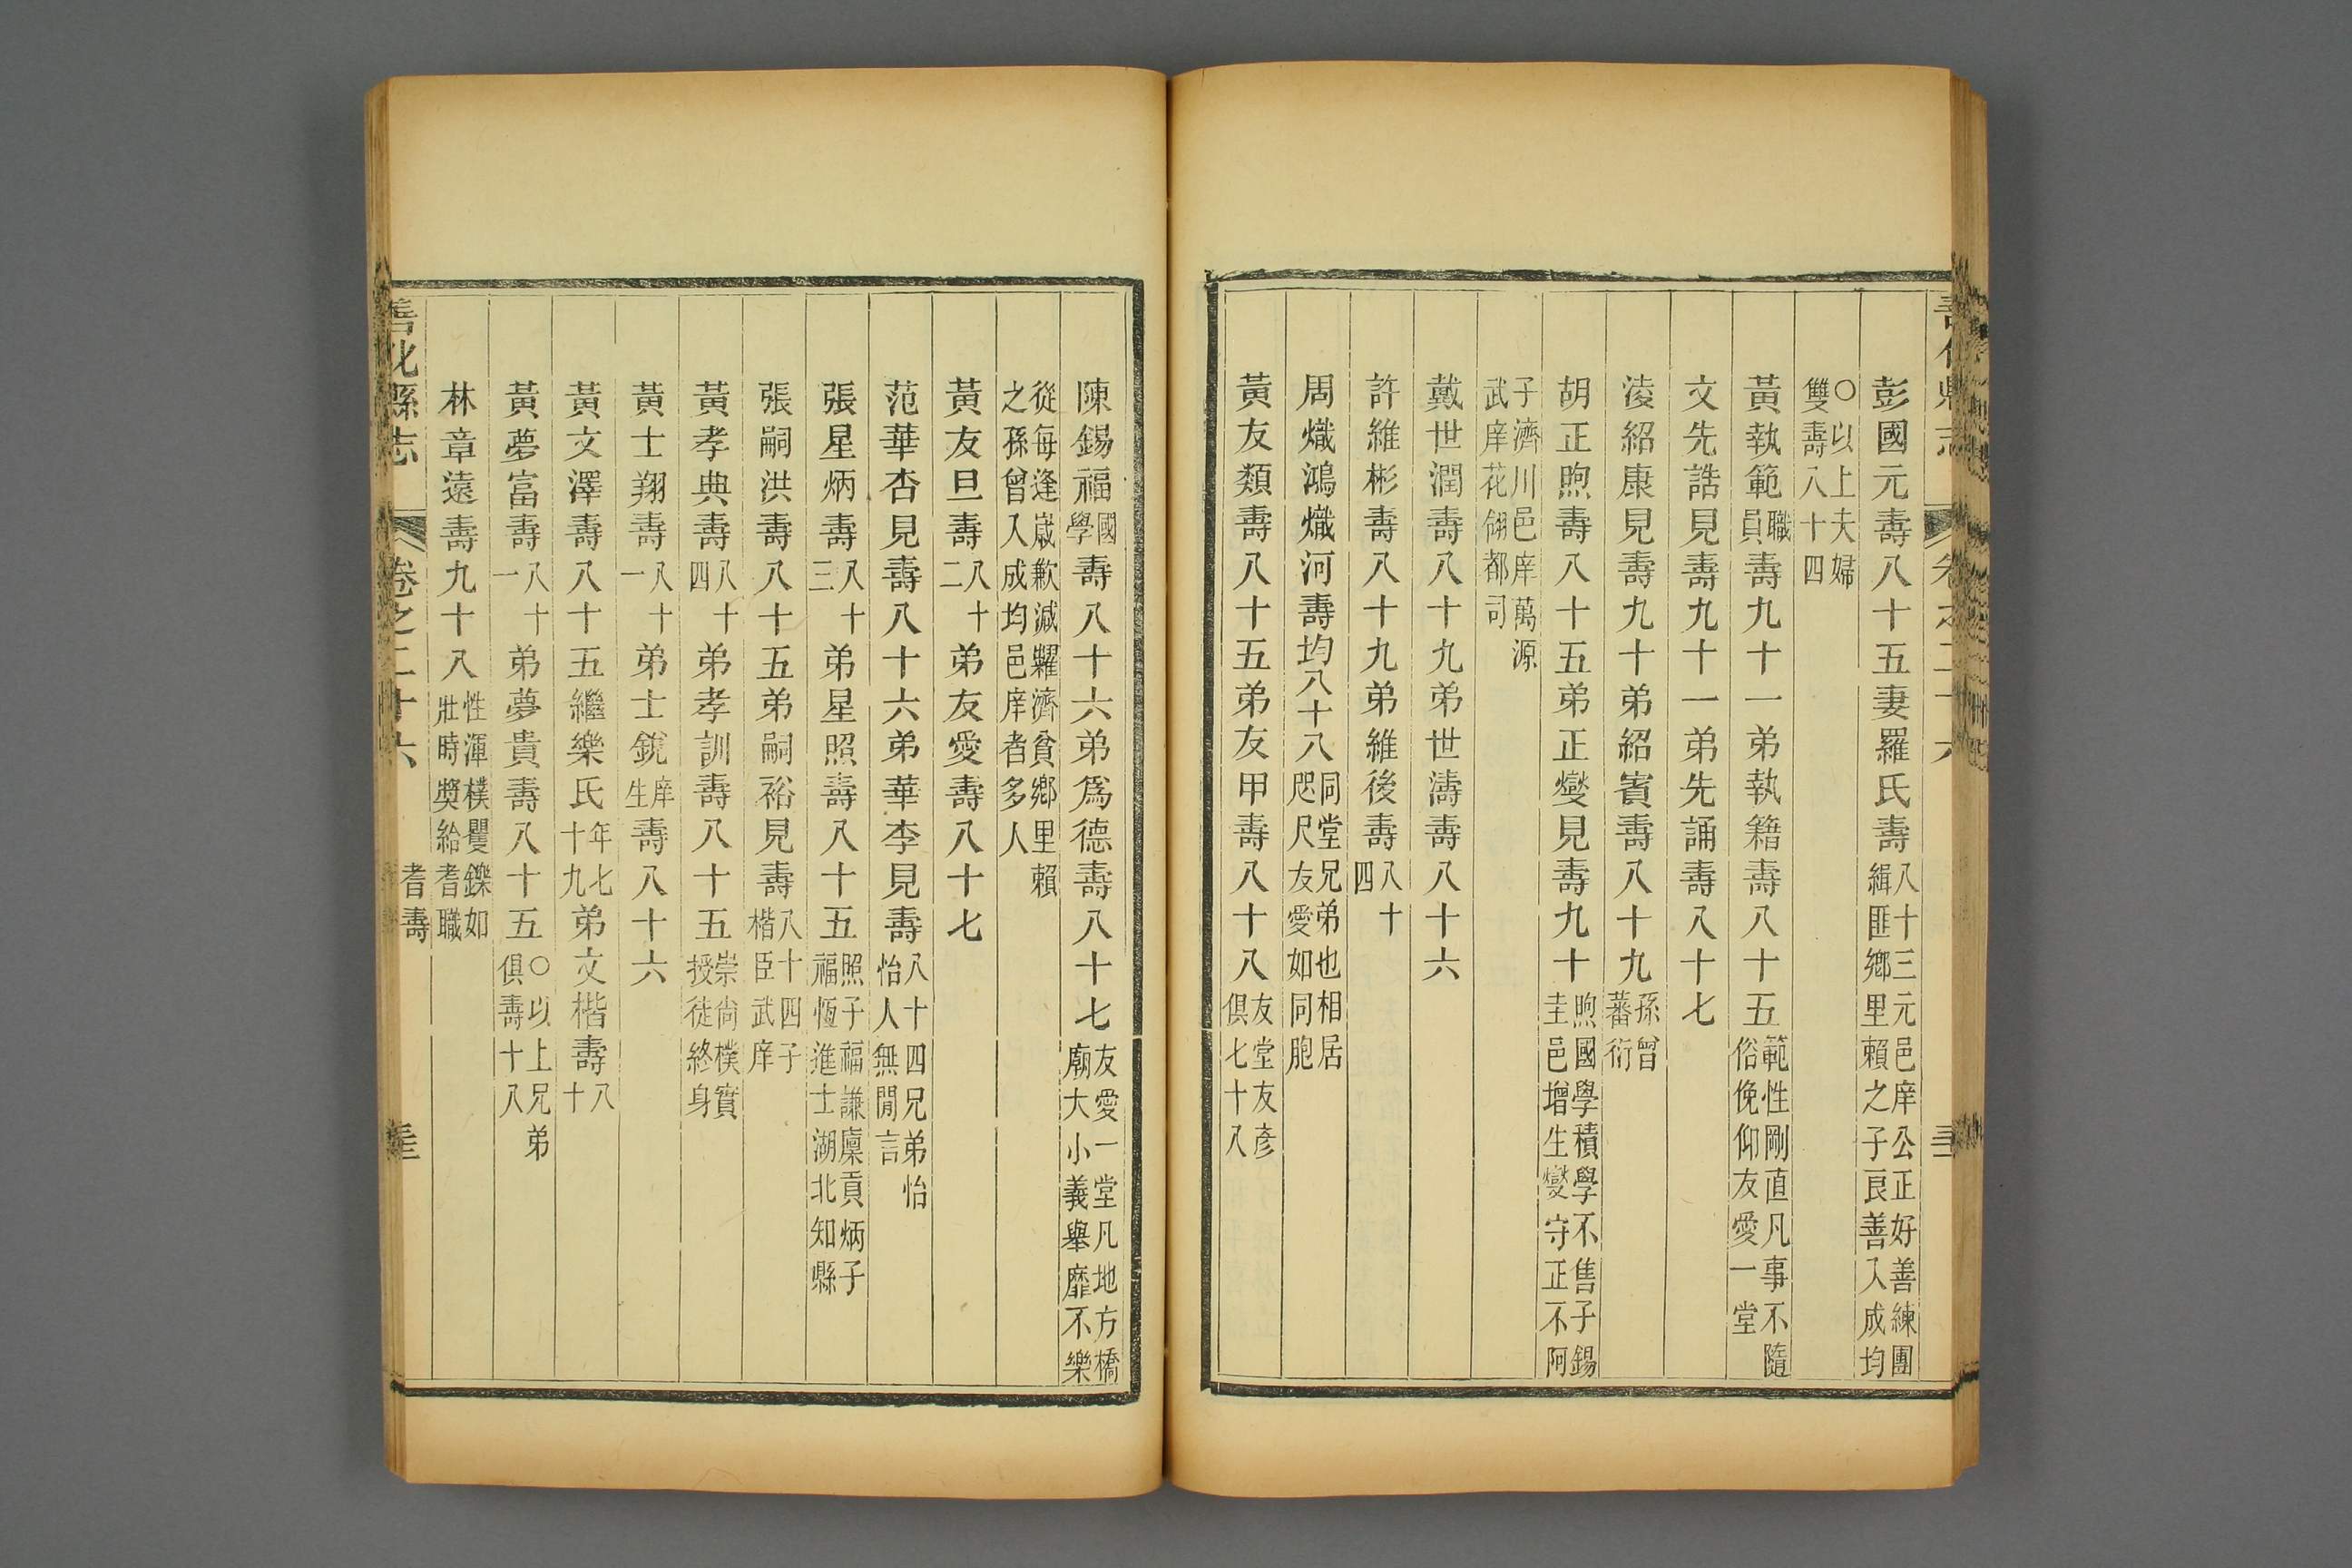 彭國元壽八十五妻羅氏壽八十三元邑庠公正好善練團緝匪鄉里賴之子良善入成均
○以上夫婦雙壽八十四
黃執範職員壽九十一弟執籍壽八十五範性剛直凡事不隨俗俛仰友愛一堂
文先誥見壽九十一弟先誦壽八十七
淩紹康見壽九十弟紹賓壽八十九孫曾蕃衍
胡正煦壽八十五弟正燮見壽九十煦國學積學不售子錫圭邑增生燮守正不阿
子濟川邑庠萬源武庠花翎都司
戴世潤壽八十九弟世濤壽八十六
許維彬壽八十九弟維後壽八十四
周熾鴻熾河壽均八十八同堂兄弟也相居咫尺友愛如同胞
黃友類壽八十五弟友甲壽八十八友堂友彥俱七十八
陳錫福國學壽八十六弟爲德壽八十七友愛一堂凡地方橋廟大小義舉靡不樂
從每逢歲歉減糶濟貧鄉里賴之孫曾入成均邑庠者多人
黃友旦壽八十二弟友愛壽八十七
范華杏見壽八十六弟華李見壽八十四兄弟怡怡人無閒言
張星炳壽八十三弟星照壽八十五照子福謙廩貢炳子福恆進士湖北知縣
張嗣洪壽八十五弟嗣裕見壽八十四子楷臣武庠
黃孝典壽八十四弟孝訓壽八十五崇尚樸實授徒終身
黃士翔壽八十一弟士銳庠生壽八十六
黃文澤壽八十五繼樂氏年七十九弟文楷壽八十
黃夢富壽八十一弟夢貴壽八十五○以上兄弟俱壽十八
林章遠壽九十八性渾樸矍鑠如壯時奬給耆職
善化縣志 卷之二十六 耆壽